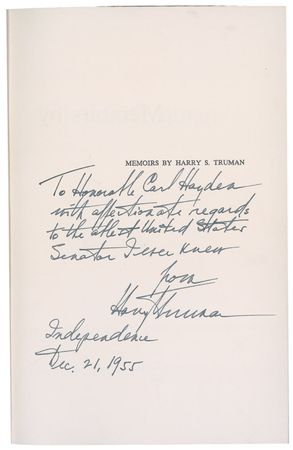 MEMOIRS BY HARRY S. TRUMAN
To Honorable Carl Hayden
with affectionate regards
to the ablest United States
Senator I ever knew
from
Harry Truman
Independence
Dec. 21, 1955